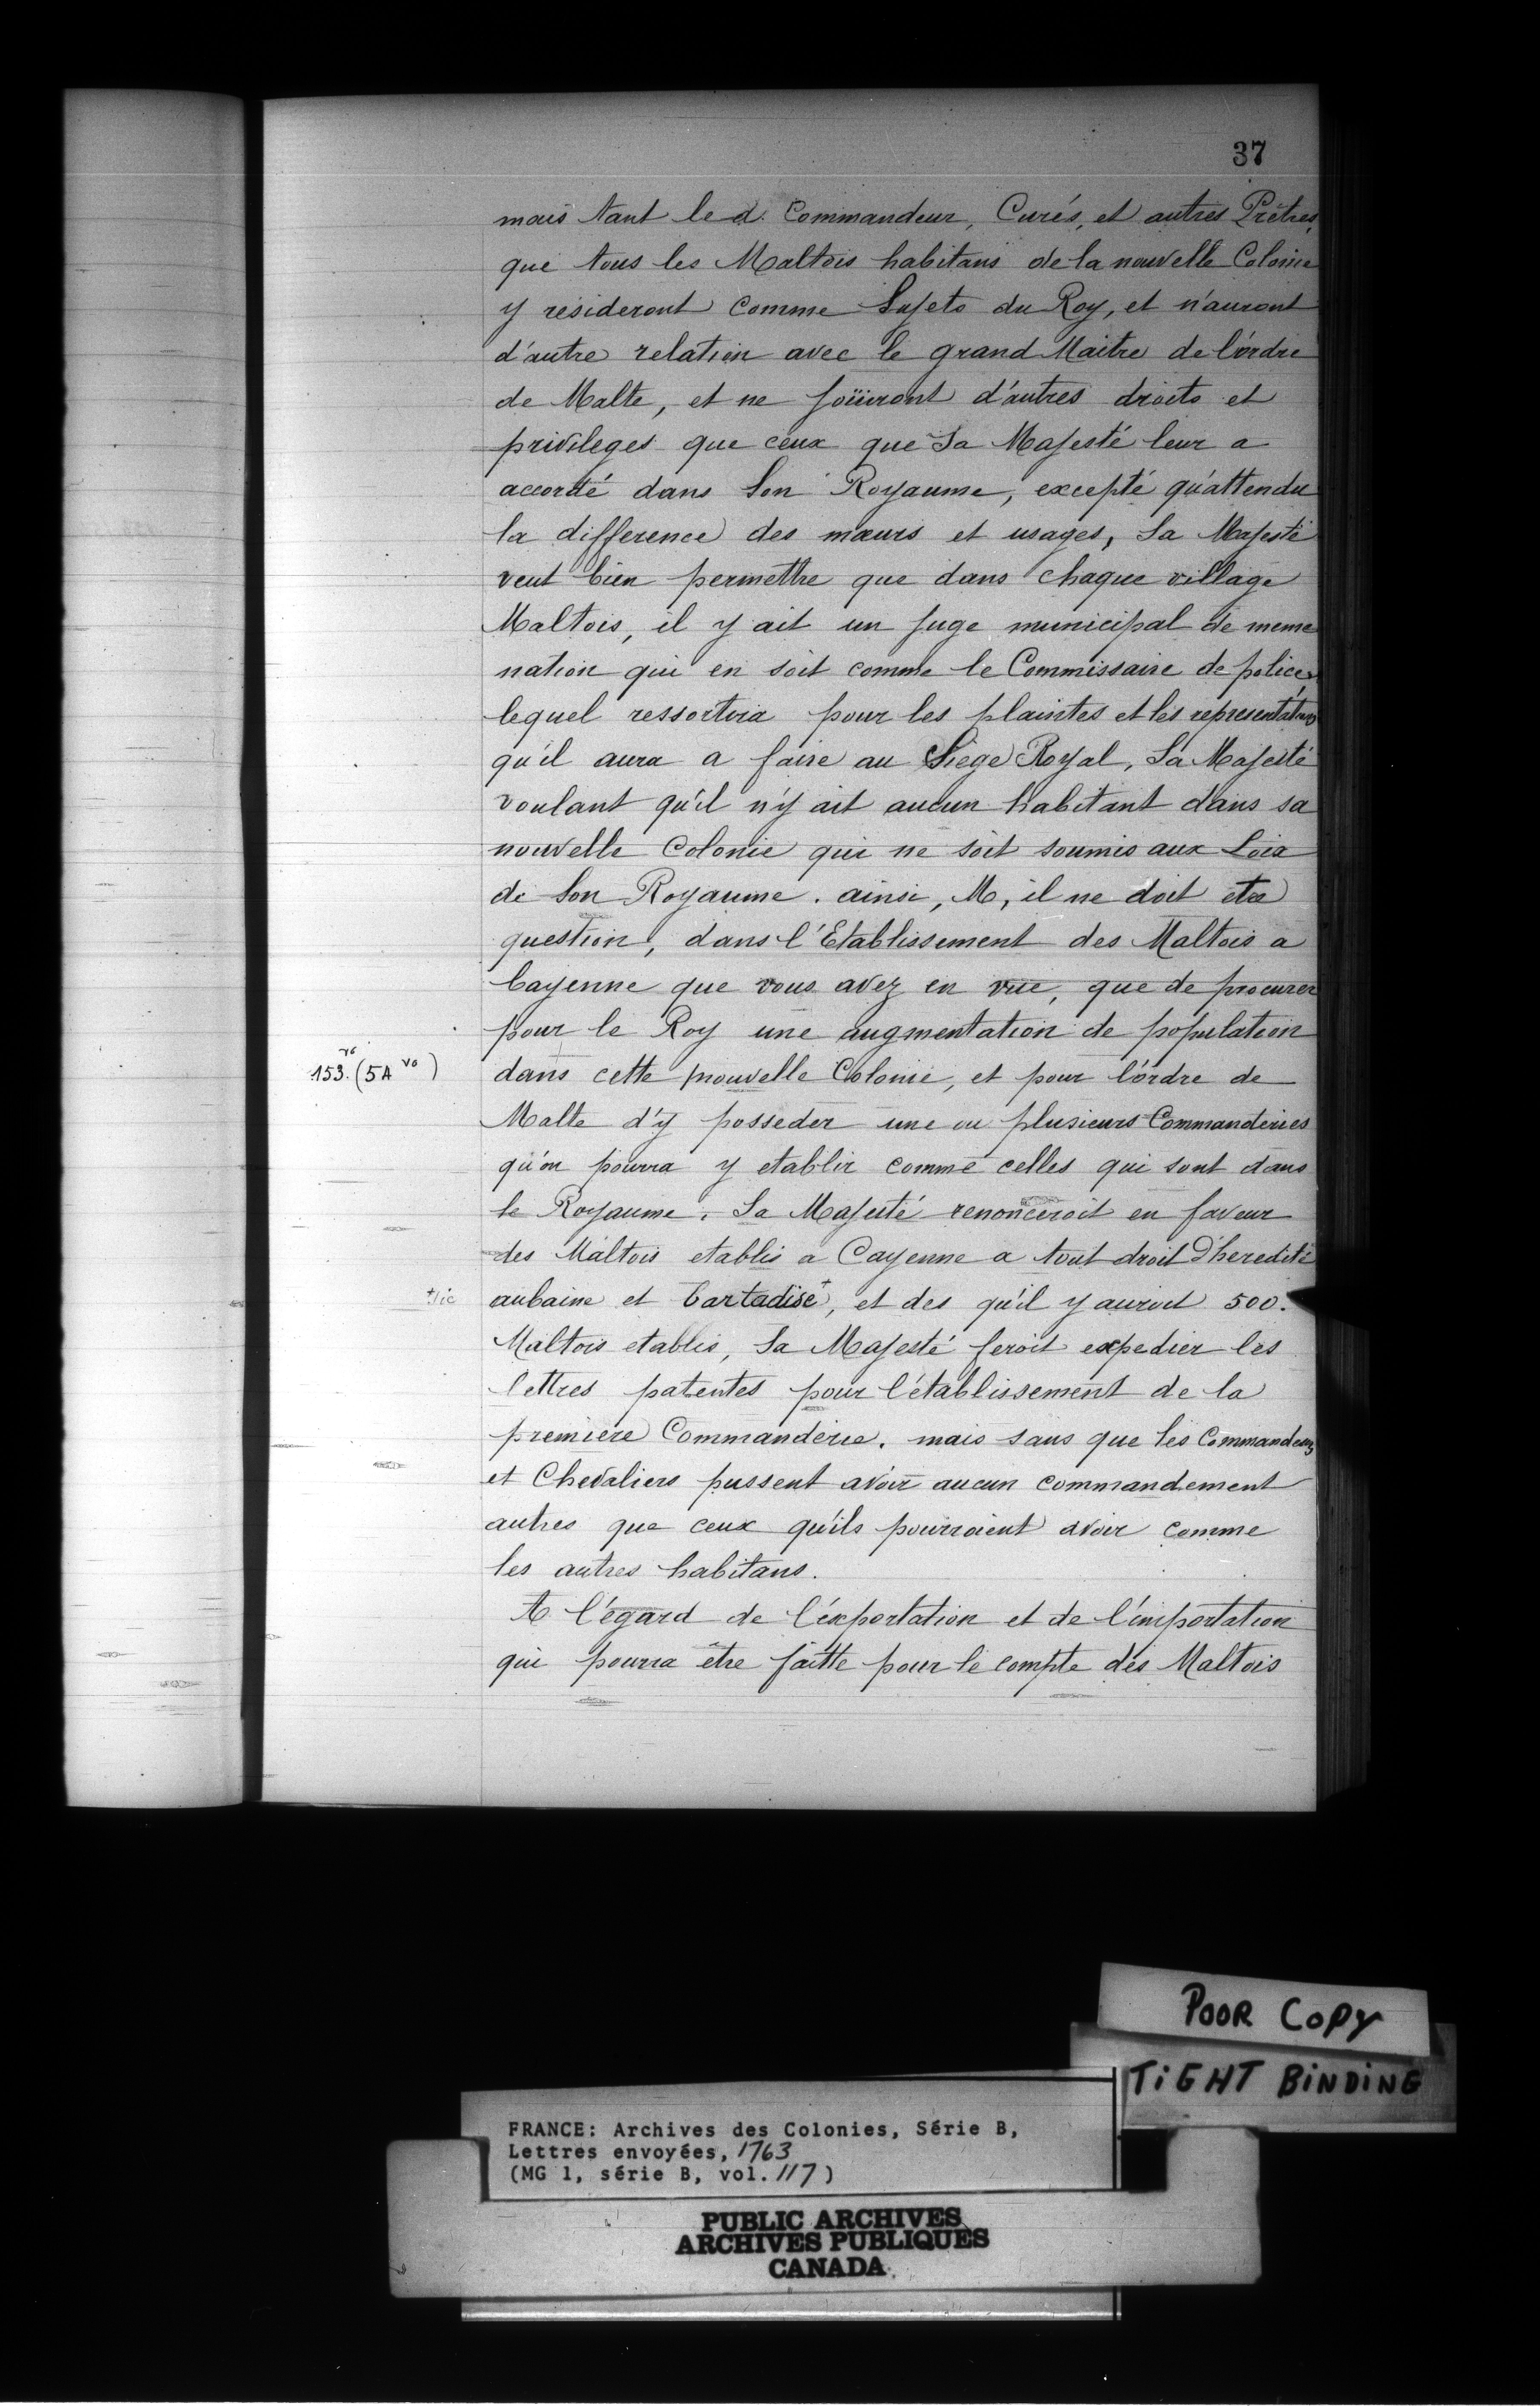 37
mais tant le d. Commandeur, Curés, et autres Prêtres,
que tous les Maltois habitans de la nouvelle Colonie
y resideront comme Sujets du Roy, et n'auront
d'autre relation avec le grand Maitre de l'ordre
de Malte, et ne joüiront d'autres droits et
privileges que ceux que Sa Majesté leur a
accordé dans Son Royaume, excepté qu'attendu
la difference des mœurs et usages, Sa Majesté
veut bien permettre que dans chaque village
Maltois, il y ait un juge municipal de meme
nation qui en soit comme le Commissaire de police,
lequel ressortira pour les plaintes et les representations
qu'il aura a faire au Siege Royal, Sa Majesté
voulant qu'il n'y ait aucun habitant dans sa
nouvelle Colonie qui ne soit soumis aux Loix
de Son Royaume. ainsi, M, il ne doit etre
question, dans l'Etablissement des Maltois a
Cayenne que vous avez en vüe, que de procurer
pour le Roy une augmentation de population
153. vo (5A vo) dans cette nouvelle Colonie, et pour l'ordre de
Malte d'y posseder une ou plusieurs Commanderies
qu'on pourra y etablir comme celles qui sont dans
le Royaume. Sa Majesté renonceroit en faveur
des Maltois etablis a Cayenne a tout droit D'heredité
+ sic aubaine et Cartadise +, et des qu'il y auroit 500.
Maltois etablis, Sa Majesté feroit expedier les
lettres patentes pour l'établissement de la
premiere Commanderie. mais sans que les Commandeurs
et Chevaliers pussent avoir aucun commandement
autres que ceux qu'ils pourroient avoir comme
les autres habitans.
A l'égard de l'exportation et de l'importation
qui pourra être faitte pour le compte des Maltois
POOR COPY
TIGHT BINDING
FRANCE: Archives des Colonies, Série B,
Lettres envoyées, 1763
(MG 1, série B, vol. 117)
PUBLIC ARCHIVES
ARCHIVES PUBLIQUES
CANADA